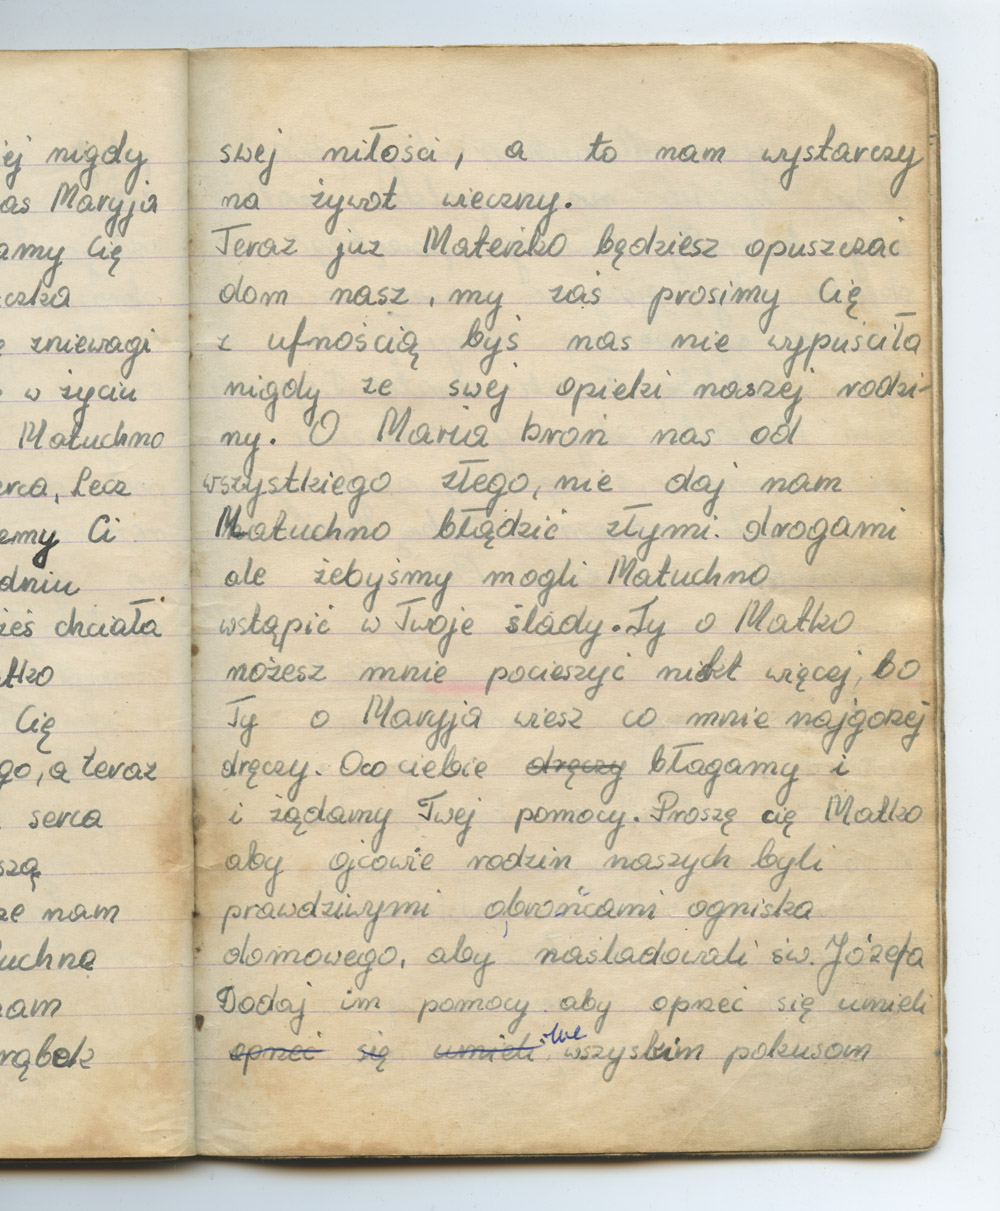 ej nigdy
as Maryja
amy Cię
czka
zniewagi
w życiu
Matuchno
erca, Lecz
emy Ci
dniu
ześ chciała
atko
Cię
go, a teraz
serca
szą
ze nam
uchna
nam
rąbek
swej miłości, a to nam wystarczy
na żywot wieczny.
Teraz już Mateńko będziesz opuszczać
dom nasz, my zaś prosimy Cię
z ufnością byś nas nie wypuściła
nigdy ze swej opieki naszej rodzi-
ny. O Maria broń nas od
wszystkiego złego, nie daj nam
Matuchno błądzić złymi drogami
ale żebyśmy mogli Matuchno
wstąpić w Twoje ślady. Ty o Matko
możesz mnie pocieszyć nikt więcej, bo
Ty o Maryja wiesz co mnie najgorzej
dręczy. Oco ciebie dręczy błagamy i
i żądamy Twej pomocy. Proszę cię Matko
aby ojcowie rodzin naszych byli
prawdziwymi obrońcami ogniska
domowego, aby naśladowali św. Józefa
Dodaj im pomocy aby oprzeć się umieli
oprzeć się umieli wszyskim pokusom